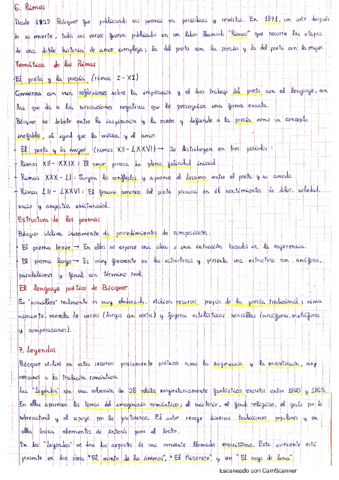 6. Rimas
Desde 1859 Bécquer fue publicando sus poemas en periódicos y revistas. En 1871, un año después
de su muerte, todos sus versos fueron publicados en un libro llamado "Rimas" que recorre las etapas
de una doble historia de amor compleja: la del poeta con la poesía y la del poeta con la mujer.
Temática de las Rimas
El poeta y la poesía (rimas I - XI)
Comienza con unas reflexiones sobre la inspiración y el duro trabajo del poeta con el lenguaje, con
las que da a las expresiones negativas que le persiguen una forma exacta.
Bécquer se debate entre la inspiración y la razón y defiende a la poesía como un concepto
inefable, al igual que la música y el amor.
- El poeta y la mujer (rimas XII - LXXVI) → Se distinguen en tres periodos:
- Rimas XII - XXIX: El amor provoca la plena felicidad inicial
- Rimas XXX - LI: Surgen los conflictos y aparece el desamor entre el poeta y su amada
- Rimas LII - LXXVI: El fracaso amoroso del poeta provoca en él sentimientos de dolor, soledad,
vacío y angustia existencial.
Estructura de los poemas
Bécquer utiliza procedimientos de composición:
- El poema breve → En ellos se expone una idea o una intuición basada en la sugerencia.
- El poema largo → Es muy frecuente en las estructuras y presenta una estructura con anáforas,
paralelismos y final con término real.
El lenguaje poético de Bécquer
Su "sencillez" realmente es muy elaborada. Utiliza recursos propios de la poesía tradicional: rima
asonante, mezcla de versos (largos con cortos) y figuras estilísticas sencillas (anáforas, metáforas
y comparaciones).
7. Leyendas
Bécquer utilizó en estas recursos puramente poéticos como la sugerencia y la ensoñación, muy
cercanos a la tradición romántica.
Las "Leyendas" son una colección de 28 relatos mayoritariamente fantásticos escritos entre 1860 y 1865.
En ellas aparecen los temas del imaginario romántico: el misterio, el fondo religioso, el gusto por lo
sobrenatural y el apego por lo fantástico. El autor recoge diversas tradiciones populares y en
ellas busca elementos de interés para el lector.
En las "Leyendas" se dan los aspectos de una corriente llamada espiritismo. Esta corriente está
presente en sus obras "El monte de las ánimas", "El Miserere" y en "El rayo de luna".
Escaneado con CamScanner